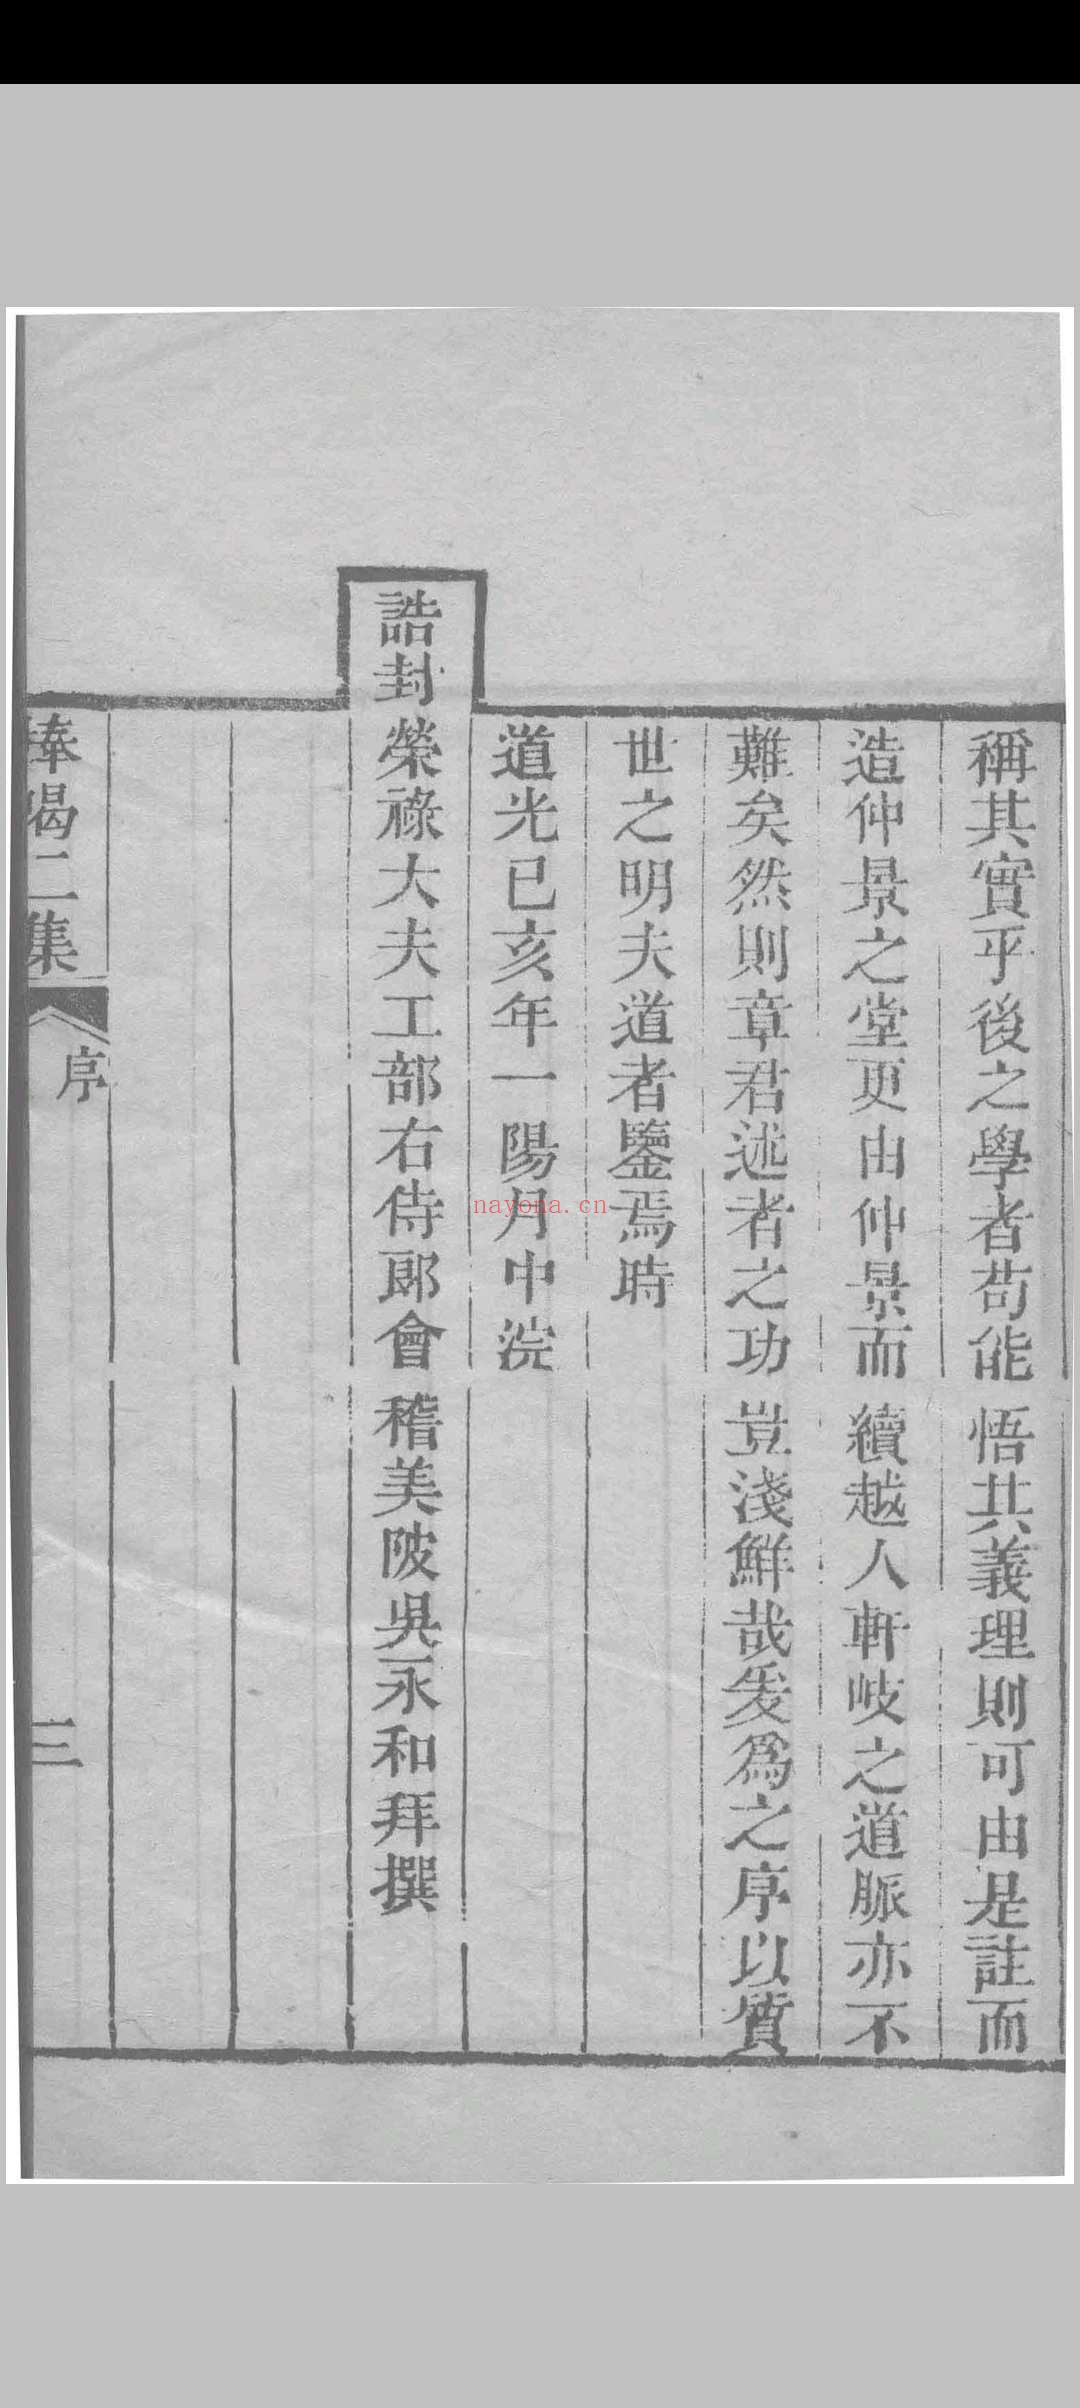 稱其實乎後之學者苟能悟其義理則可由是註而
造仲景之堂更由仲景而續越人軒岐之道脈亦不
難矣然則章君述者之功豈淺鮮哉爰爲之序以質
世之明夫道者鑒焉時
道光已亥年一陽月中浣
誥封榮祿大夫工部右侍郎會稽美陂吳永和拜撰
捧喝二集
序
三
nayona.cn